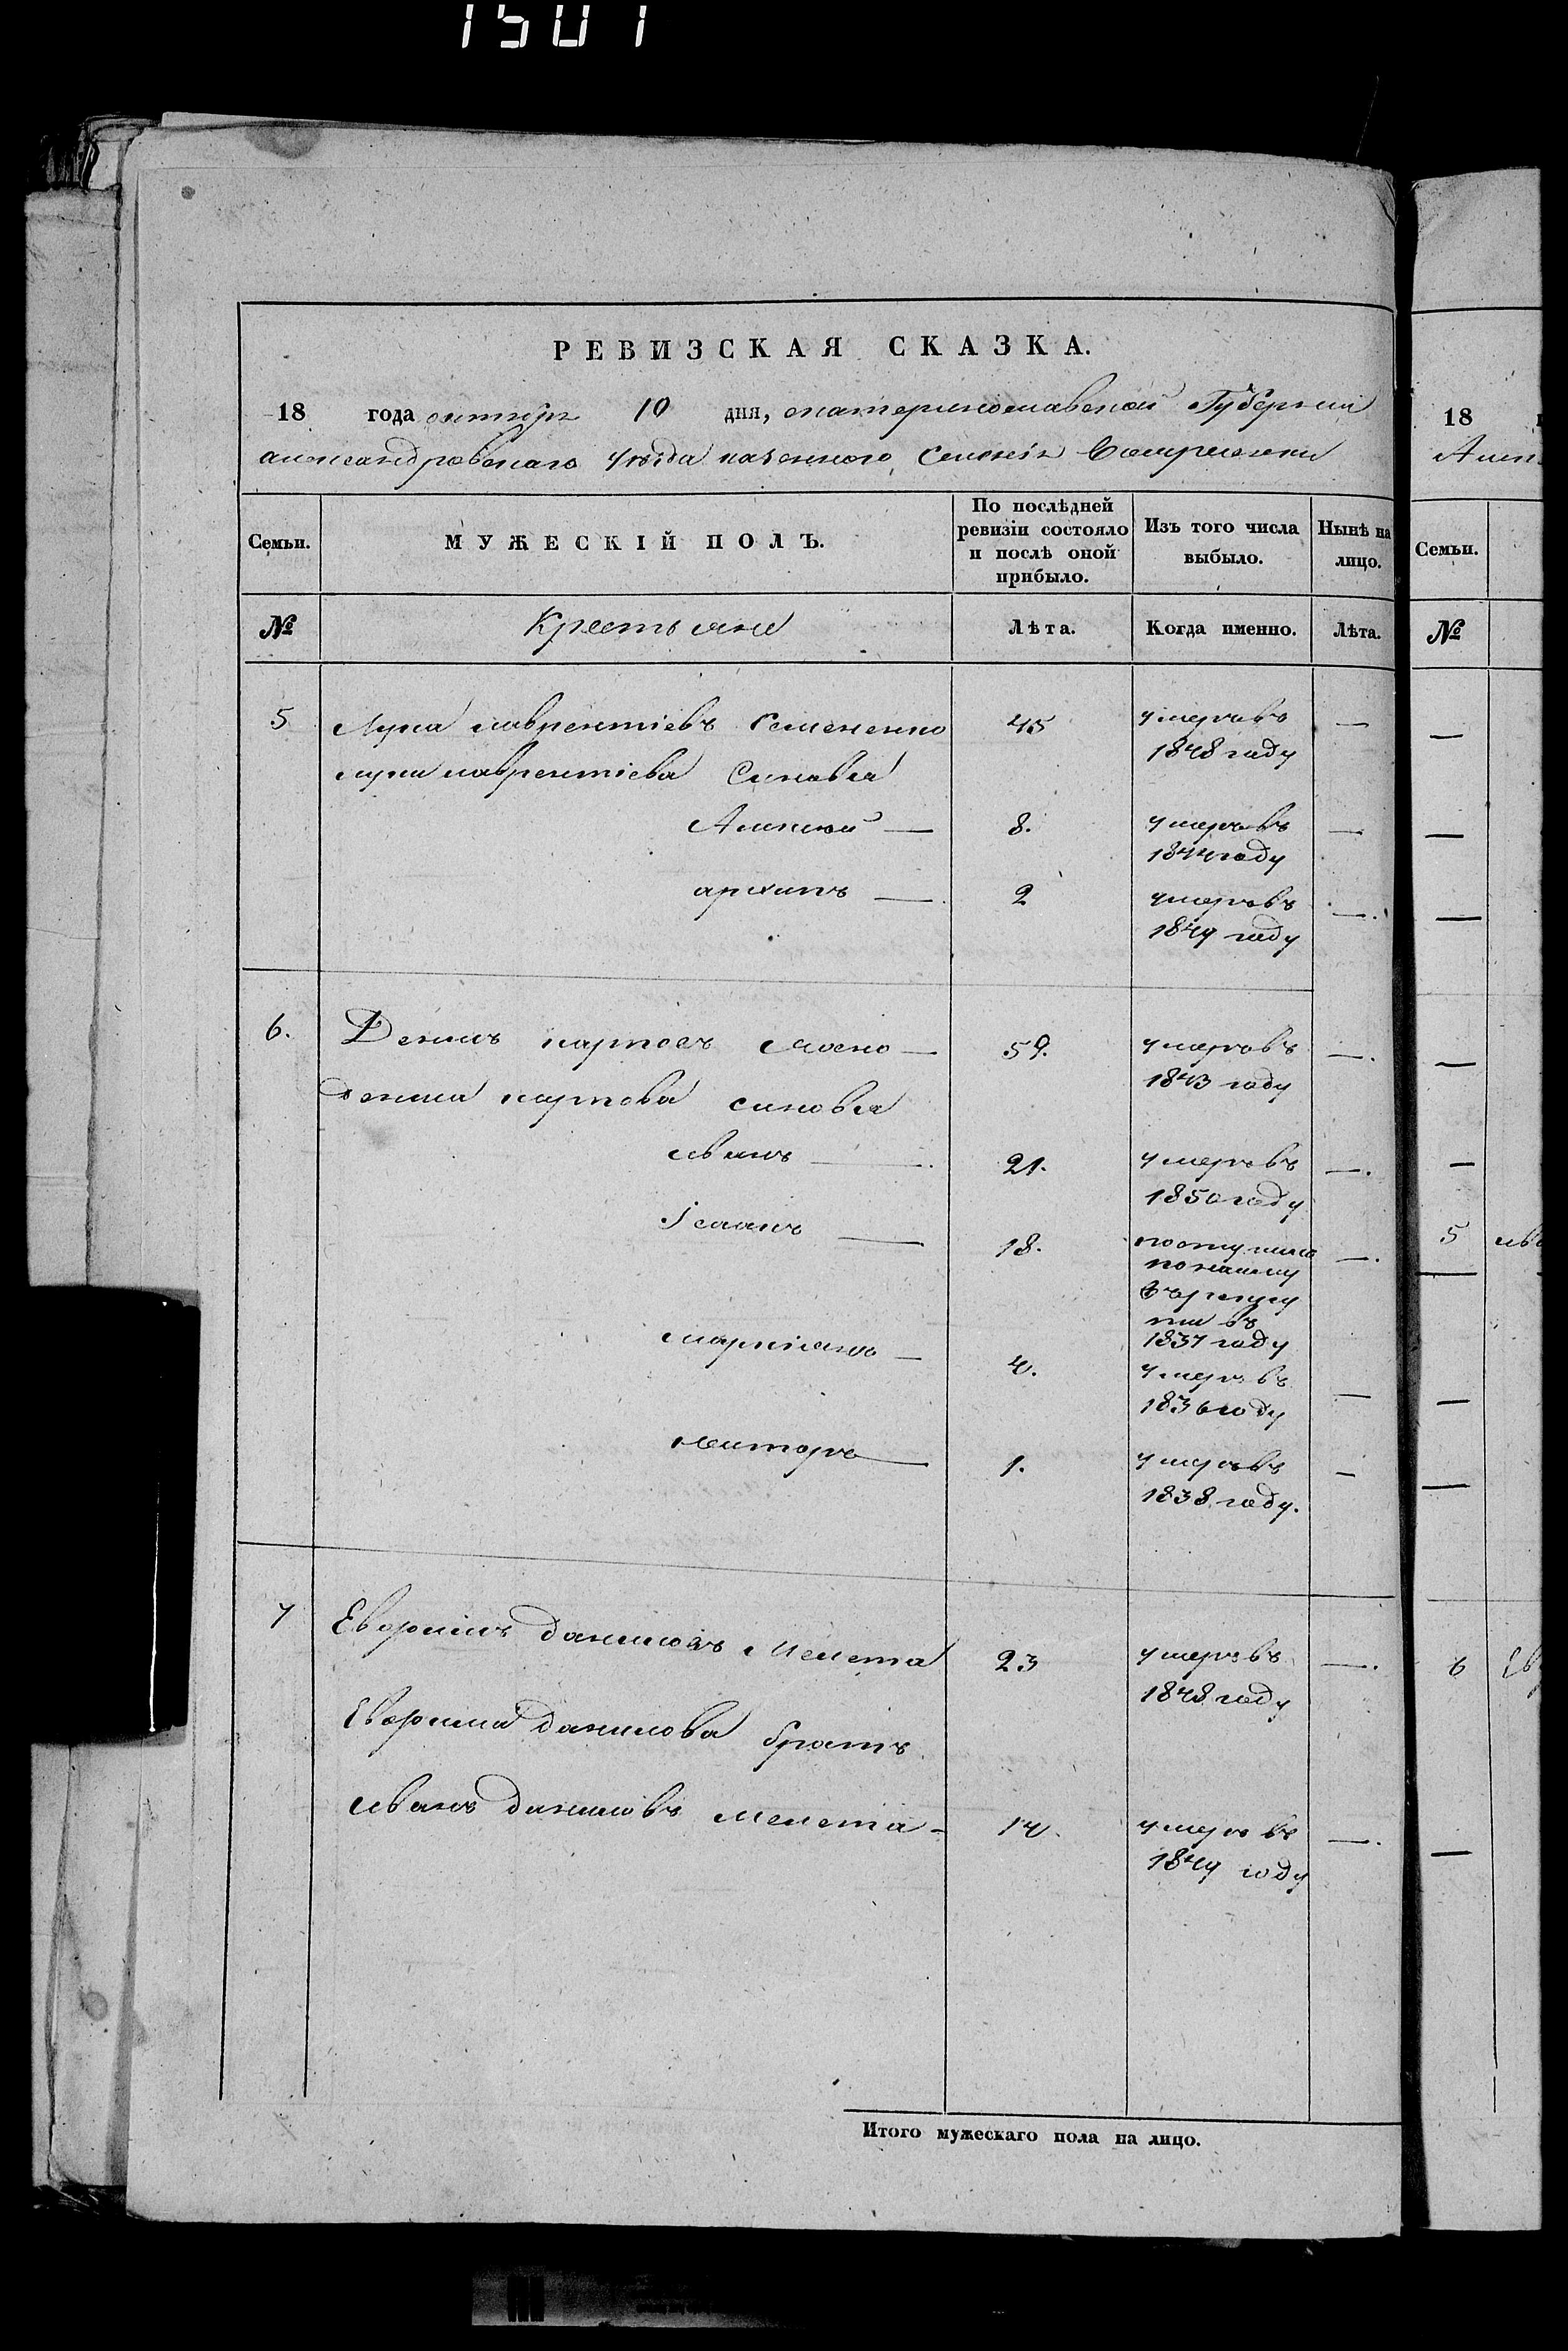 1501
РЕВИЗСКАЯ СКАЗКА.
18 года октября 10 дня, екатеринославской Губернии
александровскаго уѣзда казенного Селенія
Семьи.
МУЖЕСКІЙ ПОЛЪ.
По послѣдней ревизіи состояло и послѣ оной прибыло.
Изъ того числа выбыло.
Нынѣ на лицо.
№
Крестьяне
Лѣта.
Когда именно.
Лѣта.
5 Лука лаврентіевъ Семененко 45 умеръ въ 1848 году —
луки лаврентіева Синовья
Алексей — 8. умеръ въ 1844 году —
архипъ — 2 умеръ въ 1849 году —.
6. Денисъ карповъ — 59. умеръ въ 1843 году —.
дениса карпова синовья
иванъ — 21. умеръ въ 1850 году —.
Ісаакъ — 18. въ 1837 году —.
маркіанъ — 4. умеръ въ 1836 году —
несторъ — 1. умеръ въ 1838 году. —
7 Евфимъ даниловъ Мелета 23 умеръ въ 1848 году —.
Евфима данилова братъ
иванъ даниловъ мелета - 14. умеръ въ 1849 году —.
Итого мужескаго пола на лицо.
18
Семьи.
№
5
6